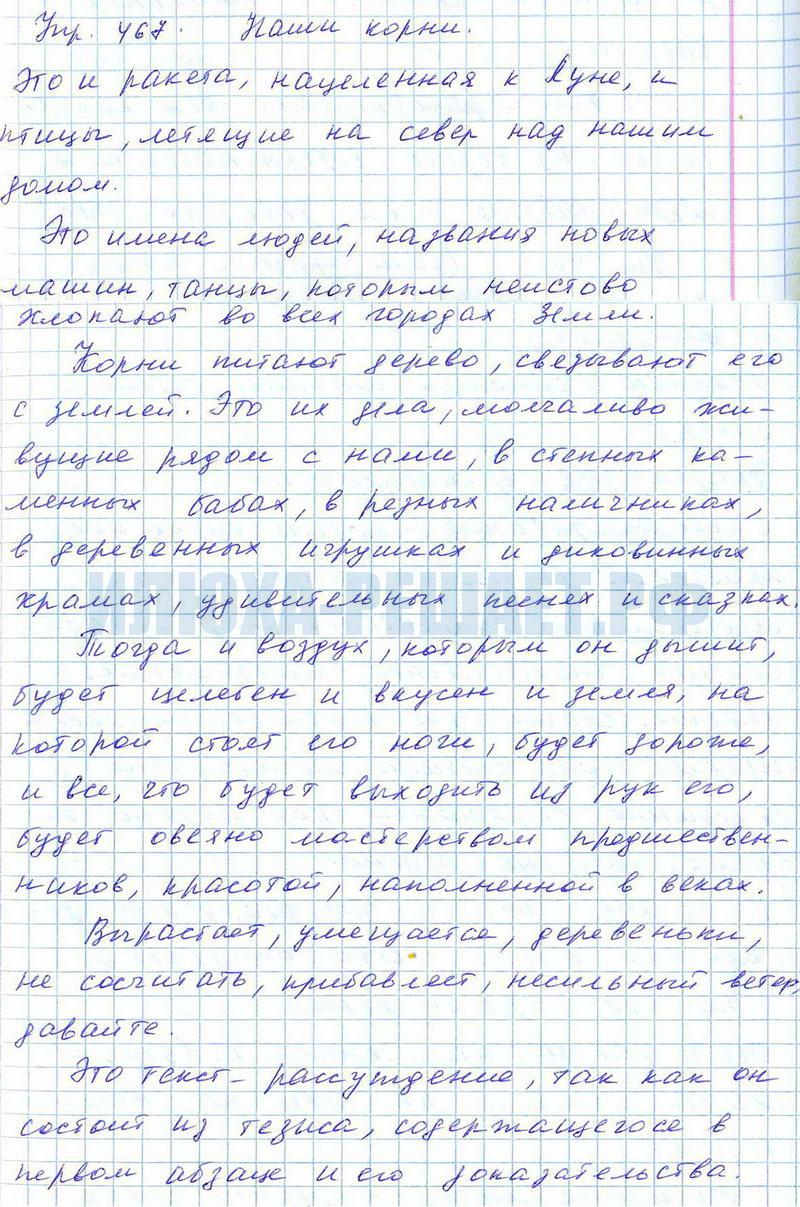 Упр. 467. Наши корни.
Это и ракета, нацеленная к Луне, и
птицы, летящие на север над нашим
домом.
Это имена людей, названия новых
машин, танцы, которым неистово
хлопают во всех городах Земли.
Корни питают дерево, связывают его
с землей. Это их дела, молчаливо жи-
вущие рядом с нами, в степных ка-
менных бабах, в резных наличниках,
в деревянных игрушках и диковинных
ИЛЮХА РЕШАЕТ.РФ
храмах, удивительных песнях и сказках.
Тогда и воздух, которым он дышит,
будет целебен и вкусен и земля, на
которой стоят его ноги, будет дороже,
и все, что будет выходить из рук его,
будет овеяно мастерством предшествен-
ников, красотой, наполненной в веках.
Вырастает, умещается, деревеньки,
не сосчитать, прибавляет, несильный ветер,
давайте.
Это текст-рассуждение, так как он
состоит из тезиса, содержащегося в
первом абзаце и его доказательства.